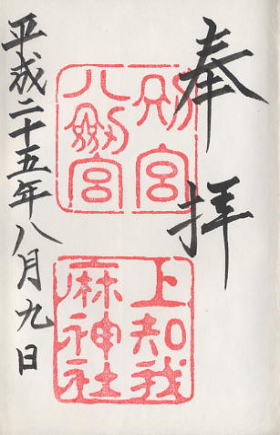 奉拝
別宮
八剱宮
上知我
麻神社
平成二十五年八月九日